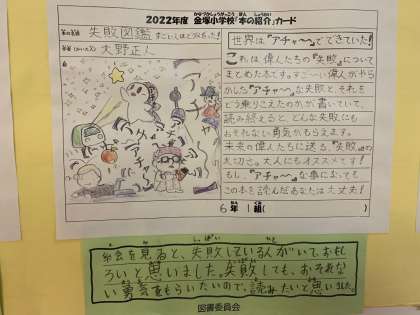 かなづかしょうがっこう ほん しょうかい
2022年度 金塚小学校「本の紹介」カード
失敗図鑑 すごい人ほどダメだった!
大野正人
世界は『アチャ〜』でできていた!
これは偉人たちの『失敗』について
まとめた本です。すご〜い偉人がやら
かした『アチャ〜』な失敗と、それを
どう乗りこえたのかが書いていて、
読み終えると、どんな失敗にも
おそれない勇気がもらえます。
未来の偉人たちに送る、『失敗』の
大切さ。大人にもオススメです!
もし、『アチャ〜』な事になっても
この本を読んだあなたは大丈夫!
6年 1組( )
絵を見ると、失敗している人がいて、おもし
ろいと思いました。失敗しても、おそれな
い勇気をもらいたいので、読みたいと思いました。
図書委員会